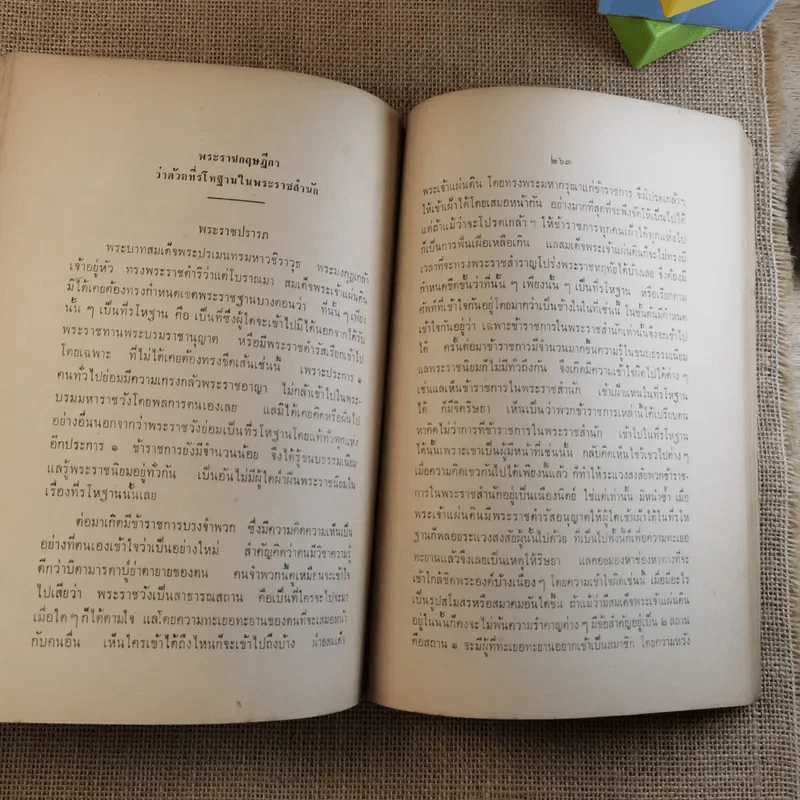 พระราชกฤษฎีกา
ว่าด้วยที่รโหฐานในพระราชสำนัก
พระราชปรารภ
พระบาทสมเด็จพระปรเมนทรมหาวชิราวุธ พระมงกุฎเกล้า
เจ้าอยู่หัว ทรงพระราชดำริว่าแต่โบราณมา สมเด็จพระเจ้าแผ่นดิน
มิได้เคยต้องทรงกำหนดเขตพระราชฐานบางตอนว่า ที่นั้น ๆ เพียง
นั้น ๆ เป็นที่รโหฐาน คือ เป็นที่ซึ่งผู้ใดจะเข้าไปมิได้นอกจากได้รับ
พระราชทานพระบรมราชานุญาต หรือมีพระราชดำรัสเรียกเข้าไป
โดยเฉพาะ ที่ไม่ได้เคยต้องทรงขีดเส้นเช่นนี้ เพราะประการ ๑
คนทั่วไปย่อมมีความเกรงกลัวพระราชอาญา ไม่กล้าเข้าไปในพระ-
บรมมหาราชวังโดยพลการตนเองเลย แลมิได้เคยคิดหรือฝันไป
อย่างอื่นนอกจากว่าพระราชวังย่อมเป็นที่รโหฐานโดยแท้ทั่วทุกแห่ง
อีกประการ ๑ ข้าราชการยังมีจำนวนน้อย จึงได้รู้ขนบธรรมเนียม
แลรู้พระราชนิยมอยู่ทั่วกัน เป็นอันไม่มีผู้ใดฝ่าฝืนพระราชนิยมใน
เรื่องที่รโหฐานนั้นเลย
ต่อมาเกิดมีข้าราชการบางจำพวก ซึ่งมีความคิดความเห็นเป็น
อย่างที่ตนเองเข้าใจว่าเป็นอย่างใหม่ สำคัญคิดว่าตนมีวิชาความรู้
ดีกว่าบิดามารดาปู่ย่าตายายของตน คนจำพวกนี้ดูเหมือนจะเข้าใจ
ไปเสียว่า พระราชวังเป็นสาธารณสถาน คือเป็นที่ใครจะไปจะมา
เมื่อใด ๆ ก็ได้ตามใจ แลโดยความทะเยอทะยานของตนที่จะเสมอหน้า
กับคนอื่น เห็นใครเข้าได้ถึงไหนก็จะเข้าไปถึงบ้าง ฝ่ายสมเด็จ
๒๖๓
พระเจ้าแผ่นดิน โดยทรงพระมหากรุณาแก่ข้าราชการ จึงโปรดเกล้า ฯ
ให้เข้าเฝ้าได้โดยเสมอหน้ากัน อย่างมากที่สุดที่จะพึงจัดให้เป็นไปได้
แต่ถ้าแม้ว่าจะโปรดเกล้า ฯ ให้ข้าราชการทุกคนเฝ้าได้ทุกแห่งไป
ก็เป็นการฟั่นเฝือเหลือเกิน แลสมเด็จพระเจ้าแผ่นดินก็จะไม่ทรงมี
เวลาที่จะทรงพระราชสำราญโปร่งพระราชหฤทัยได้บ้างเลย จึงต้องมี
กำหนดขีดขั้นว่าที่นั้น ๆ เพียงนั้น ๆ เป็นที่รโหฐาน หรือเรียกตาม
ศัพท์ที่เข้าใจกันอยู่โดยมากว่าเป็นข้างในในที่เช่นนี้ ในชั้นต้นมีกำหนด
เข้าใจกันอยู่ว่า เฉพาะข้าราชการในพระราชสำนักเท่านั้นจึงจะเข้าไป
ได้ ครั้นต่อมาข้าราชการมีจำนวนมากขึ้นความรู้ในขนบธรรมเนียม
แลพระราชนิยมก็ไม่มีทั่วถึงกัน จึงเกิดมีความเข้าใจผิดไปได้ต่าง ๆ
เช่นแลเห็นข้าราชการในพระราชสำนัก เข้าเฝ้าแหนในที่รโหฐาน
ได้ ก็มีจิตริษยา เห็นเป็นว่าพวกข้าราชการเหล่านี้ได้เปรียบตน
หาคิดไม่ว่าการที่ข้าราชการในพระราชสำนัก เข้าไปในที่รโหฐาน
ได้นั้นเพราะเขาเป็นผู้มีหน้าที่เช่นนั้น กลับคิดเห็นไขว้เขวไปต่าง ๆ
เมื่อความคิดเขวกันไปได้เพียงนี้แล้ว ก็ทำให้ระแวงสงสัยพวกข้าราช-
การในพระราชสำนักอยู่เป็นเนืองนิตย์ ใช่แต่เท่านั้น มิหนำซ้ำ เมื่อ
พระเจ้าแผ่นดินมีพระราชดำรัสอนุญาตให้ผู้ใดเข้าเฝ้าได้ในที่รโห
ฐานก็พลอยระแวงสงสัยผู้นั้นไปด้วย ที่เป็นไปทั้งนี้ก็เพื่อความทะเยอ
ทะยานแล้วจึงเลยเป็นเหตุให้ริษยา แลคอยมองหาช่องหาทางที่จะ
เข้าใกล้ชิดพระองค์บ้างเนือง ๆ โดยความเข้าใจผิดเช่นนี้ เมื่อมีอะไร
เป็นรูปสโมสรหรือสมาคมอันใดขึ้น ถ้าแม้ว่ามีสมเด็จพระเจ้าแผ่นดิน
อยู่ในนั้นก็คงจะไม่พ้นความรำคาญต่าง ๆ มีข้อสำคัญอยู่เป็น ๒ สถาน
คือสถาน ๑ จะมีผู้ที่ทะเยอทะยานอยากเข้าเป็นสมาชิก โดยความหวัง